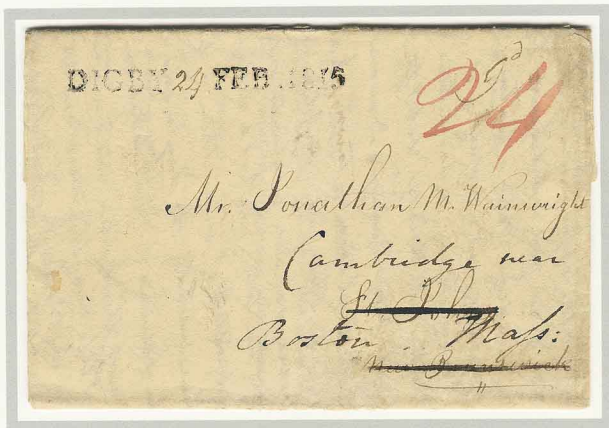 DIGBY 24 FEB. 1815
9d
24
Mr. Jonathan M. Wainwright
Cambridge near
St. Johns
Boston. Mass:
New Brunswick